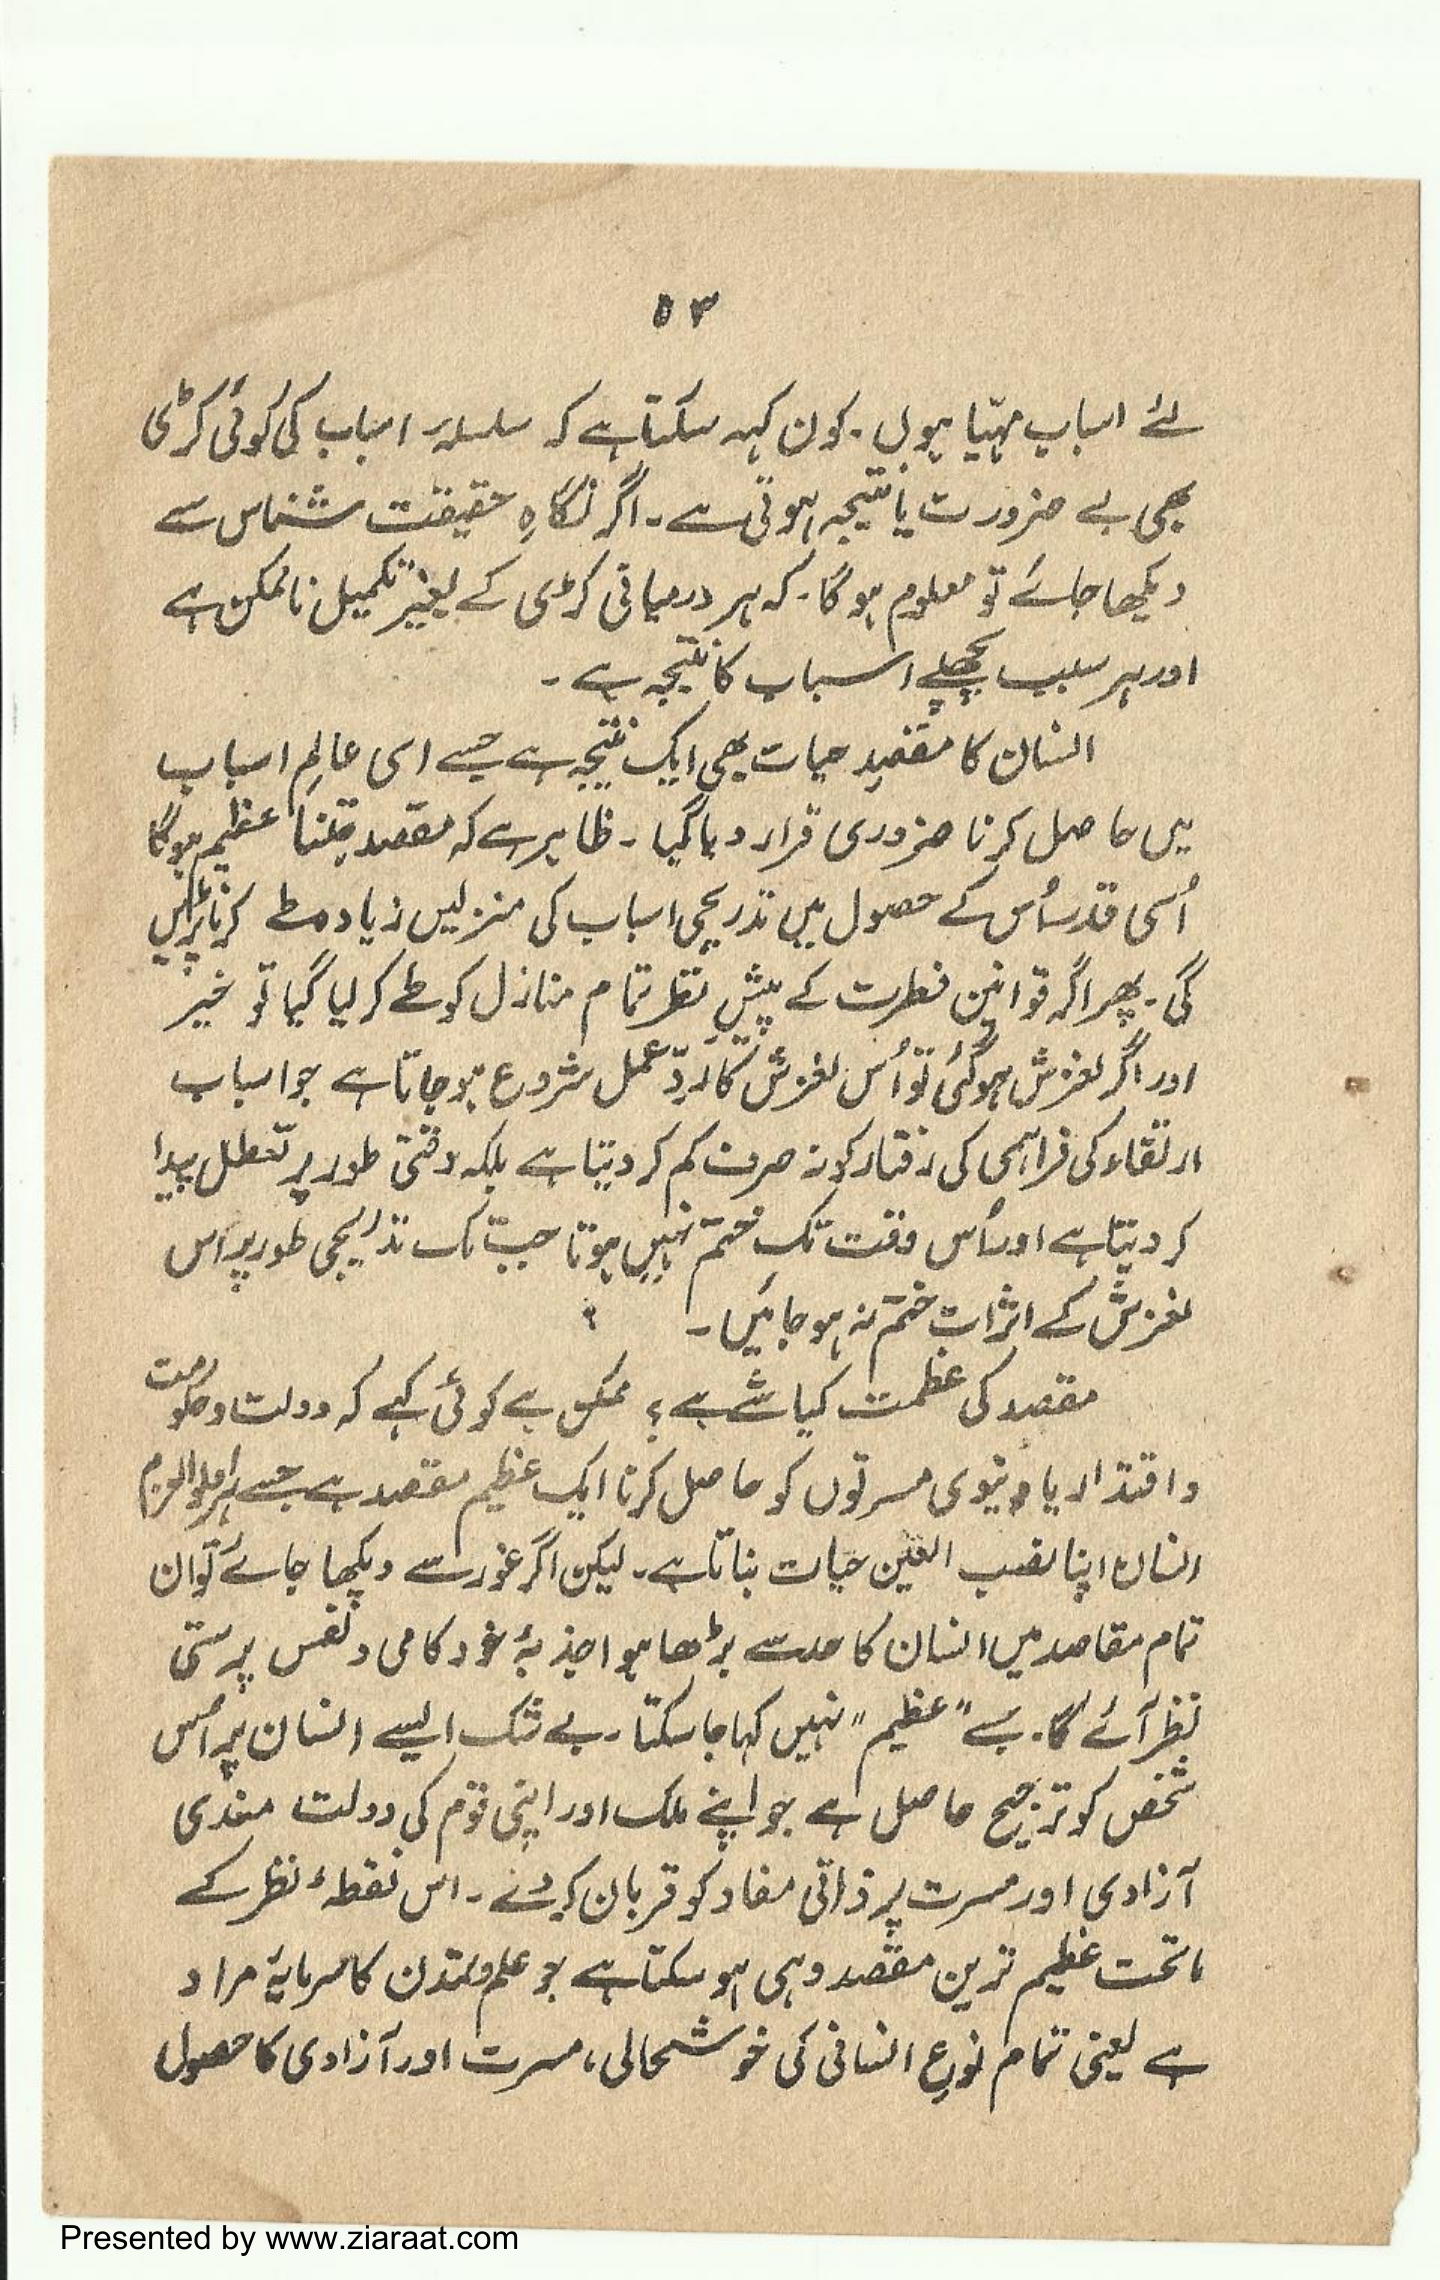 ۵۳
لئے اسباب مہیّا ہوں۔ کون کہہ سکتا ہے کہ سلسلۂ اسباب کی کوئی کڑی
بھی بے ضرورت یا نتیجہ ہوتی ہے۔ اگر نگاہِ حقیقت شناس سے
دیکھا جائے تو معلوم ہوگا۔ کہ ہر درمیانی کڑی کے بغیر تکمیل ناممکن ہے
اور ہر سبب پچھلے اسباب کا نتیجہ ہے۔
انسان کا مقصدِ حیات بھی ایک نتیجہ ہے جسے اسی عالمِ اسباب
میں حاصل کرنا ضروری قرار دیا گیا۔ ظاہر ہے کہ مقصد جتنا عظیم ہوگا
اُسی قدر اُس کے حصول میں تدریجی اسباب کی منزلیں زیادہ طے کرنا پڑیں
گی۔ پھر اگر قوانین فطرت کے پیشِ نظر تمام منازل کو طے کر لیا گیا تو خیر
اور اگر لغزش ہوگئی تو اُس لغزش کا ردِّ عمل شروع ہو جاتا ہے جو اسباب
ارتقاء کی فراہمی کی رفتار کو نہ صرف کم کر دیتا ہے بلکہ وقتی طور پر تعطل پیدا
کر دیتا ہے اور اُس وقت تک ختم نہیں ہوتا جب تک تدریجی طور پر اُس
لغزش کے اثرات ختم نہ ہو جائیں۔
مقصد کی عظمت کیا شے ہے؟ ممکن ہے کوئی کہے کہ دولت و حکومت
و اقتدار یا دنیوی مسرتوں کو حاصل کرنا ایک عظیم مقصد ہے جسے ہر اولوالعزم
انسان اپنا نصب العین حیات بناتا ہے۔ لیکن اگر غور سے دیکھا جائے تو ان
تمام مقاصد میں انسان کا حد سے بڑھا ہوا جذبۂ خود کامی و نفس پرستی
نظر آئے گا۔ جسے "عظیم" نہیں کہا جا سکتا۔ بے شک ایسے انسان پر اُس
شخص کو ترجیح حاصل ہے جو اپنے ملک اور اپنی قوم کی دولت مندی
آزادی اور مسرت پر ذاتی مفاد کو قربان کر دے۔ اس نقطۂ نظر کے
ماتحت عظیم ترین مقصد وہی ہو سکتا ہے جو علم و تمدن کا سرمایۂ مراد
ہے یعنی تمام نوعِ انسانی کی خوشحالی، مسرت اور آزادی کا حصول
Presented by www.ziaraat.com